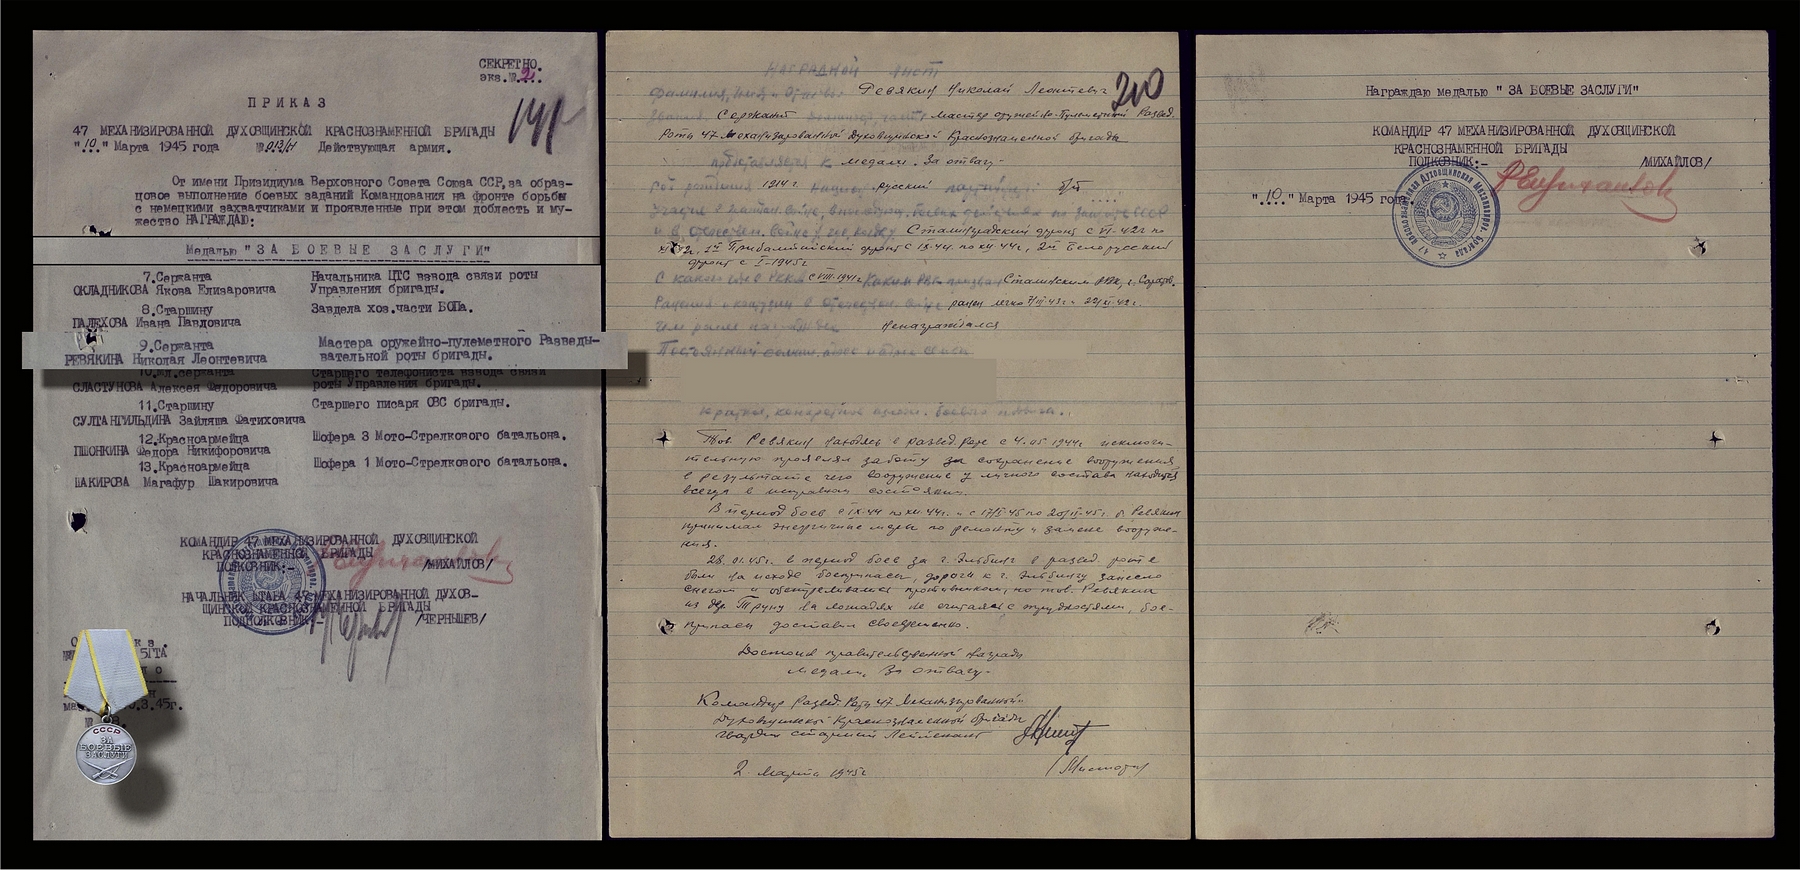 СЕКРЕТНО.
экз.№ 2.
ПРИКАЗ
47 МЕХАНИЗИРОВАННОЙ ДУХОВЩИНСКОЙ КРАСНОЗНАМЕННОЙ БРИГАДЫ
"10" Марта 1945 года № 013/н Действующая армия.
От имени Призидиума Верховного Совета Союза ССР, за образ-
цовое выполнение боевых заданий Командования на фронте борьбы
с немецкими захватчиками и проявленные при этом доблесть и му-
жество НАГРАЖДАЮ:
Медалью "ЗА БОЕВЫЕ ЗАСЛУГИ"
7.Сержанта Начальника ЦТС взвода связи роты
ОКЛАДНИКОВА Якова Елизаровича Управления бригады.
8.Старшину Завдела хоз.части БОПа.
ПАЛЕХОВА Ивана Павловича
9.Сержанта Мастера оружейно-пулеметного Разведы-
РЕВЯКИНА Николая Леонтевича вательной роты бригады.
10.мл.сержанта Старшего телефониста взвода связи
СЛАСТУНОВА Алексея Федоровича роты Управления бригады.
11.Старшину Старшего писаря ОВС бригады.
СУЛТАНГИЛЬДИНА Зайляша Фатиховича
12.Красноармейца Шофера 3 Мото-Стрелкового батальона.
ПШОНКИНА Федора Никифоровича
13.Красноармейца Шофера 1 Мото-Стрелкового батальона.
ШАКИРОВА Магафур Шакировича
КОМАНДИР 47 МЕХАНИЗИРОВАННОЙ ДУХОВЩИНСКОЙ
КРАСНОЗНАМЕННОЙ БРИГАДЫ
ПОЛКОВНИК:- /МИХАЙЛОВ/
НАЧАЛЬНИК ШТАБА 47 МЕХАНИЗИРОВАННОЙ ДУХОВ-
ЩИНСКОЙ КРАСНОЗНАМЕННОЙ БРИГАДЫ
ПОДПОЛКОВНИК:- /ЧЕРНЫШЕВ/
5ГТА
3.45г.
СССР
ЗА
БОЕВЫЕ
ЗАСЛУГИ
НАГРАДНОЙ ЛИСТ
200
Фамилия, Имя и Отчество Ревякин Николай Леонтевич
Звание Сержант должность, часть Мастер оружейно-Пулеметный Развед.
Роты 47 Механизированной Духовщинской Краснознаменной бригады
представляется к медали "За отвагу"
Год рождения 1914 г. Национ. русский партийн. б/п
Участие в
и в отечествен. войне Сталинградский фронт с VI-42г по
Прибалтийский фронт с IX-44 по XII 44г, 2й Белорусский
фронт с I-1945г
С какого г. в РККА с VIII-1941г Каким РВК призван Сталинским РВК, г. Саратов.
Ранения и контузии в отечествен. войне ранен легко
Чем ранее награжден Ненаграждался
Постоянный адрес
Тов. Ревякин находясь в развед. роте с 4.05 1944г исключи-
тельную проявлял заботу за сохранение вооружения
в результате чего вооружение у личного состава находится
всегда в исправном состоянии.
В период боев с IX-44 по XII 44г. и с 17/I 45 по Ревякин
принимал энергичные меры по ремонту и замене вооруже-
ния.
28.01.45г. в период боев за г. Эльбинг в развед. роте
были на исходе боеприпасы, дороги к г. Эльбингу занесло
снегом и обстреливались противником, но тов. Ревякин
из дер. Труну на лошадях не считаясь с трудностями, бое-
припасы доставил своевременно.
Достоин правительственной награды
медали "За отвагу"
Командир Развед. Роты 47 Механизированной
Духовщинской Краснознаменной бригады
гвардии старший Лейтенант
2 марта 1945г
Награждаю медалью "ЗА БОЕВЫЕ ЗАСЛУГИ"
КОМАНДИР 47 МЕХАНИЗИРОВАННОЙ ДУХОВЩИНСКОЙ
КРАСНОЗНАМЕННОЙ БРИГАДЫ
ПОЛКОВНИК:- /МИХАЙЛОВ/
"10" Марта 1945 года